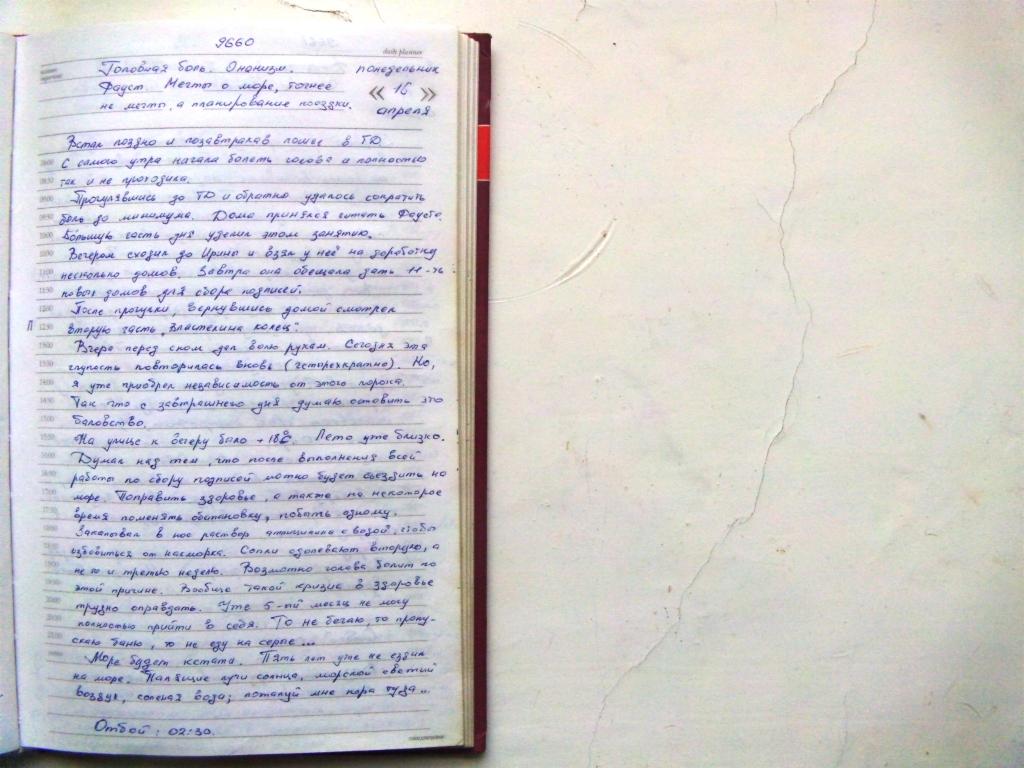 9660
daily planner
Головная боль. Онанизм. понедельник
Фауст. Мечты о море, точнее « 16 »
не мечты, а планирование поездки. апреля
Встал поздно и позавтракав пошёл в ТД.
С самого утра начала болеть голова и полностью
так и не проходила.
Прогулявшись до ТД и обратно удалось сократить
боль до минимума. Дома принялся читать Фауста.
Бо́льшую часть дня уделил этому занятию.
Вечером сходил до Ирины и взял у неё на доработку
несколько домов. Завтра она обещала дать
новых домов для сбора подписей.
После прогулки, вернувшись домой смотрел
вторую часть „Властелина колец".
Вчера перед сном дал волю рукам. Сегодня эта
глупость повторилась вновь (четырёхкратно). Но,
я уже приобрел независимость от этого порока.
Так что с завтрашнего дня думаю оставить это
баловство.
На улице к вечеру было +18°С. Лето уже близко.
Думал над тем, что после выполнения всей
работы по сбору подписей можно будет съездить на
море. Поправить здоровье, а также на некоторое
время поменять обстановку, побыть одному.
Закапывал в нос раствор с водой, чтобы
избавиться от насморка. Сопли одолевают вторую, а
не то и третью неделю. Возможно голова болит по
этой причине. Вообще такой кризис в здоровье
трудно оправдать. Уже 5-ый месяц не могу
полностью прийти в себя. То не бегаю, то пропу-
скаю баню, то не еду на серые...
Море будет кстати. Пять лет уже не ездил
на море. Палящие лучи солнца, морской свежий
воздух, соленая вода; пожалуй мне пора туда...
Отбой: 02:30.